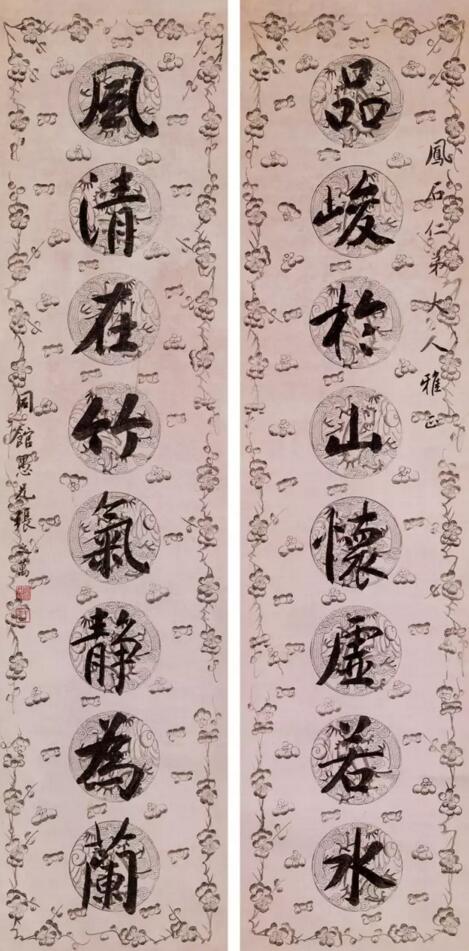 鳳石仁弟大人雅正
品峻於山懷虛若水
風清在竹氣靜為蘭
同館愚兄張之萬